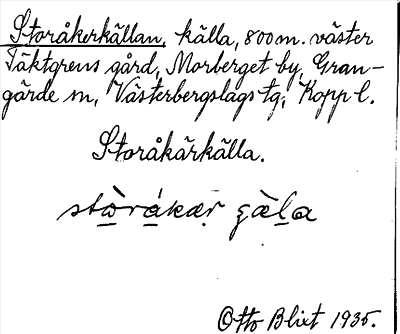 Storåkerkällan, källa, 800 m. väster
Täktgrens gård, Morberget by, Gran-
gärde sn, Västerbergslags tg, Kopp l.
Storåkärkälla.
stòråkær gæ̀la
Otto Blixt 1935.